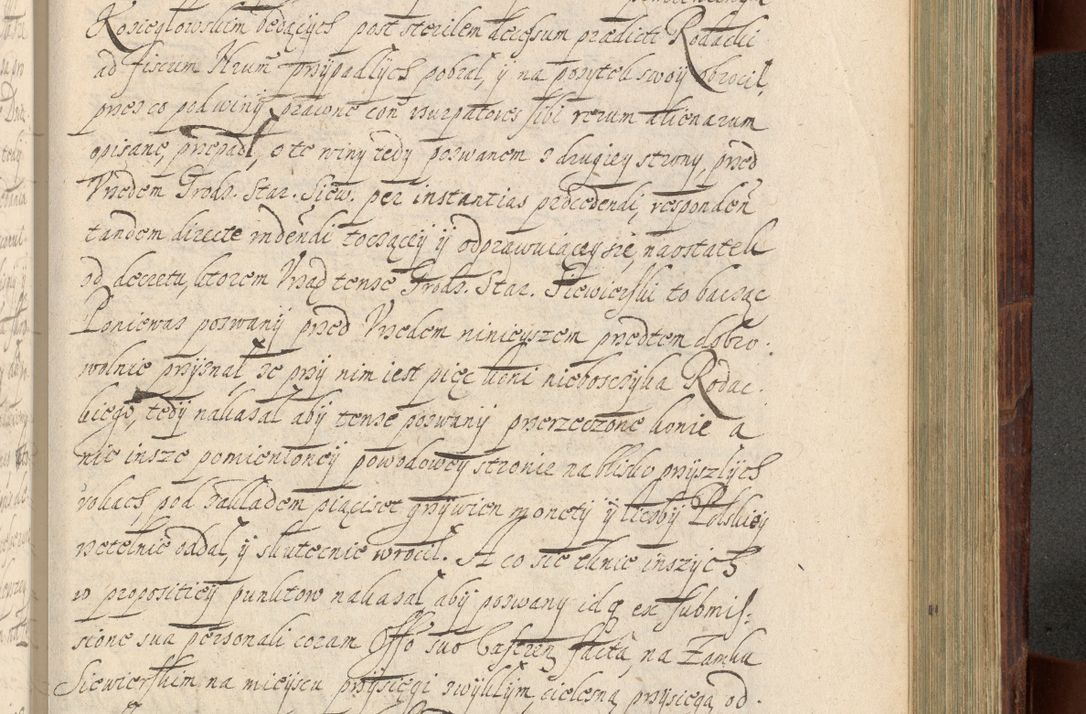 Kosicytowskim będących post sterilem decessum prædicti Rodacki
ad fiscum Nrum przypadłych pobrał, y na pozytek swoy obrocił,
przes co pod winy prawne con usurpatores sibi rerum alienarum
opisane, przepadł, o te winy tedy poswanem z drugiey strony, przed
Vrzedem Grodz. Star. Siew. per instantias procedendi, responden
tandem directe toczącey y odprawuiącey się, naostatek
od decretu, ktorem Vrząd tense Grodz. Star. Siewierski to bacząc
Poniewas poswany przed Vrzedem ninieyszem przedtem dobro.
wolnie przyznał ze przy nim iest pięc koni nieboszczyka Rodac.
kiego, tedy nakasał aby tense poswany przerzeczone konie a
nie insze pomienioney powodowey stronie na blisko przyszłych
rokach, pod zakładem piąciset grzywien monety y liczby Polskiey
rzetelnie oddał, y skutecznie wrocił. A co sie tknie inszych
w propositiey punktow nakasał aby poswany idq ex submis:
sione sua personali coram Offo suo Castren facta, na Zamku
Siewierskim na mieyscu przysięgi zwykłym, cielesną przysięgą od.